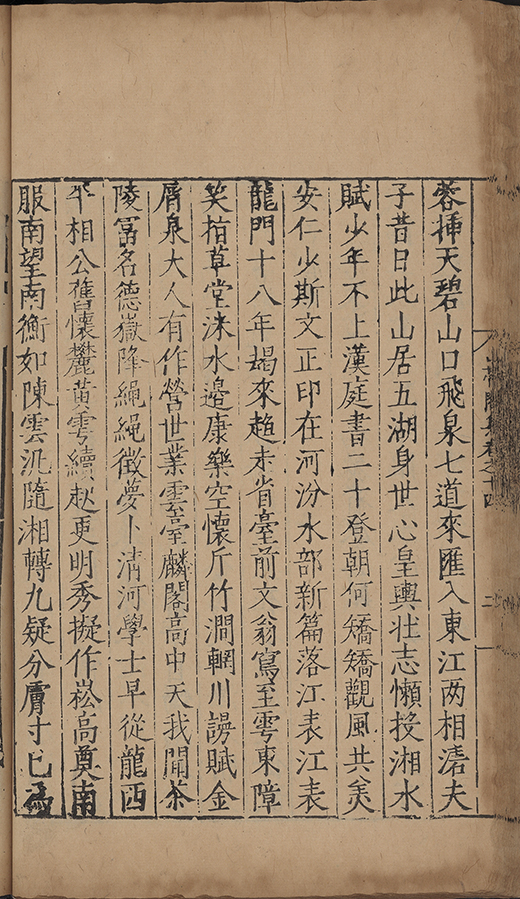 蓉揷天碧山口飛泉七道來匯入東江两相㵝夫
子昔日此山居五湖身世心皇輿壮志懶投湘水
賦少年不上漢庭書二十登朝何矯矯觀風共羙
安仁少斯文正印在河汾水部新篇落江表江表
龍門十八年朅來趋未省臺前文翁寫至雩東障
笑指草堂洙水邊康樂空懷斤竹澗輞川謾賦金
屑泉大人有作營世業雲臺麟閣高中天我聞茶
陵冨名德嶽降繩繩徵夢卜清河學士早從龍西
平相公舊懷麓黄雩續赵更明秀擬作崧高奠南
服南望南衡如陳雲沅隨湘轉九疑分膚寸已爲
卷之十四
二